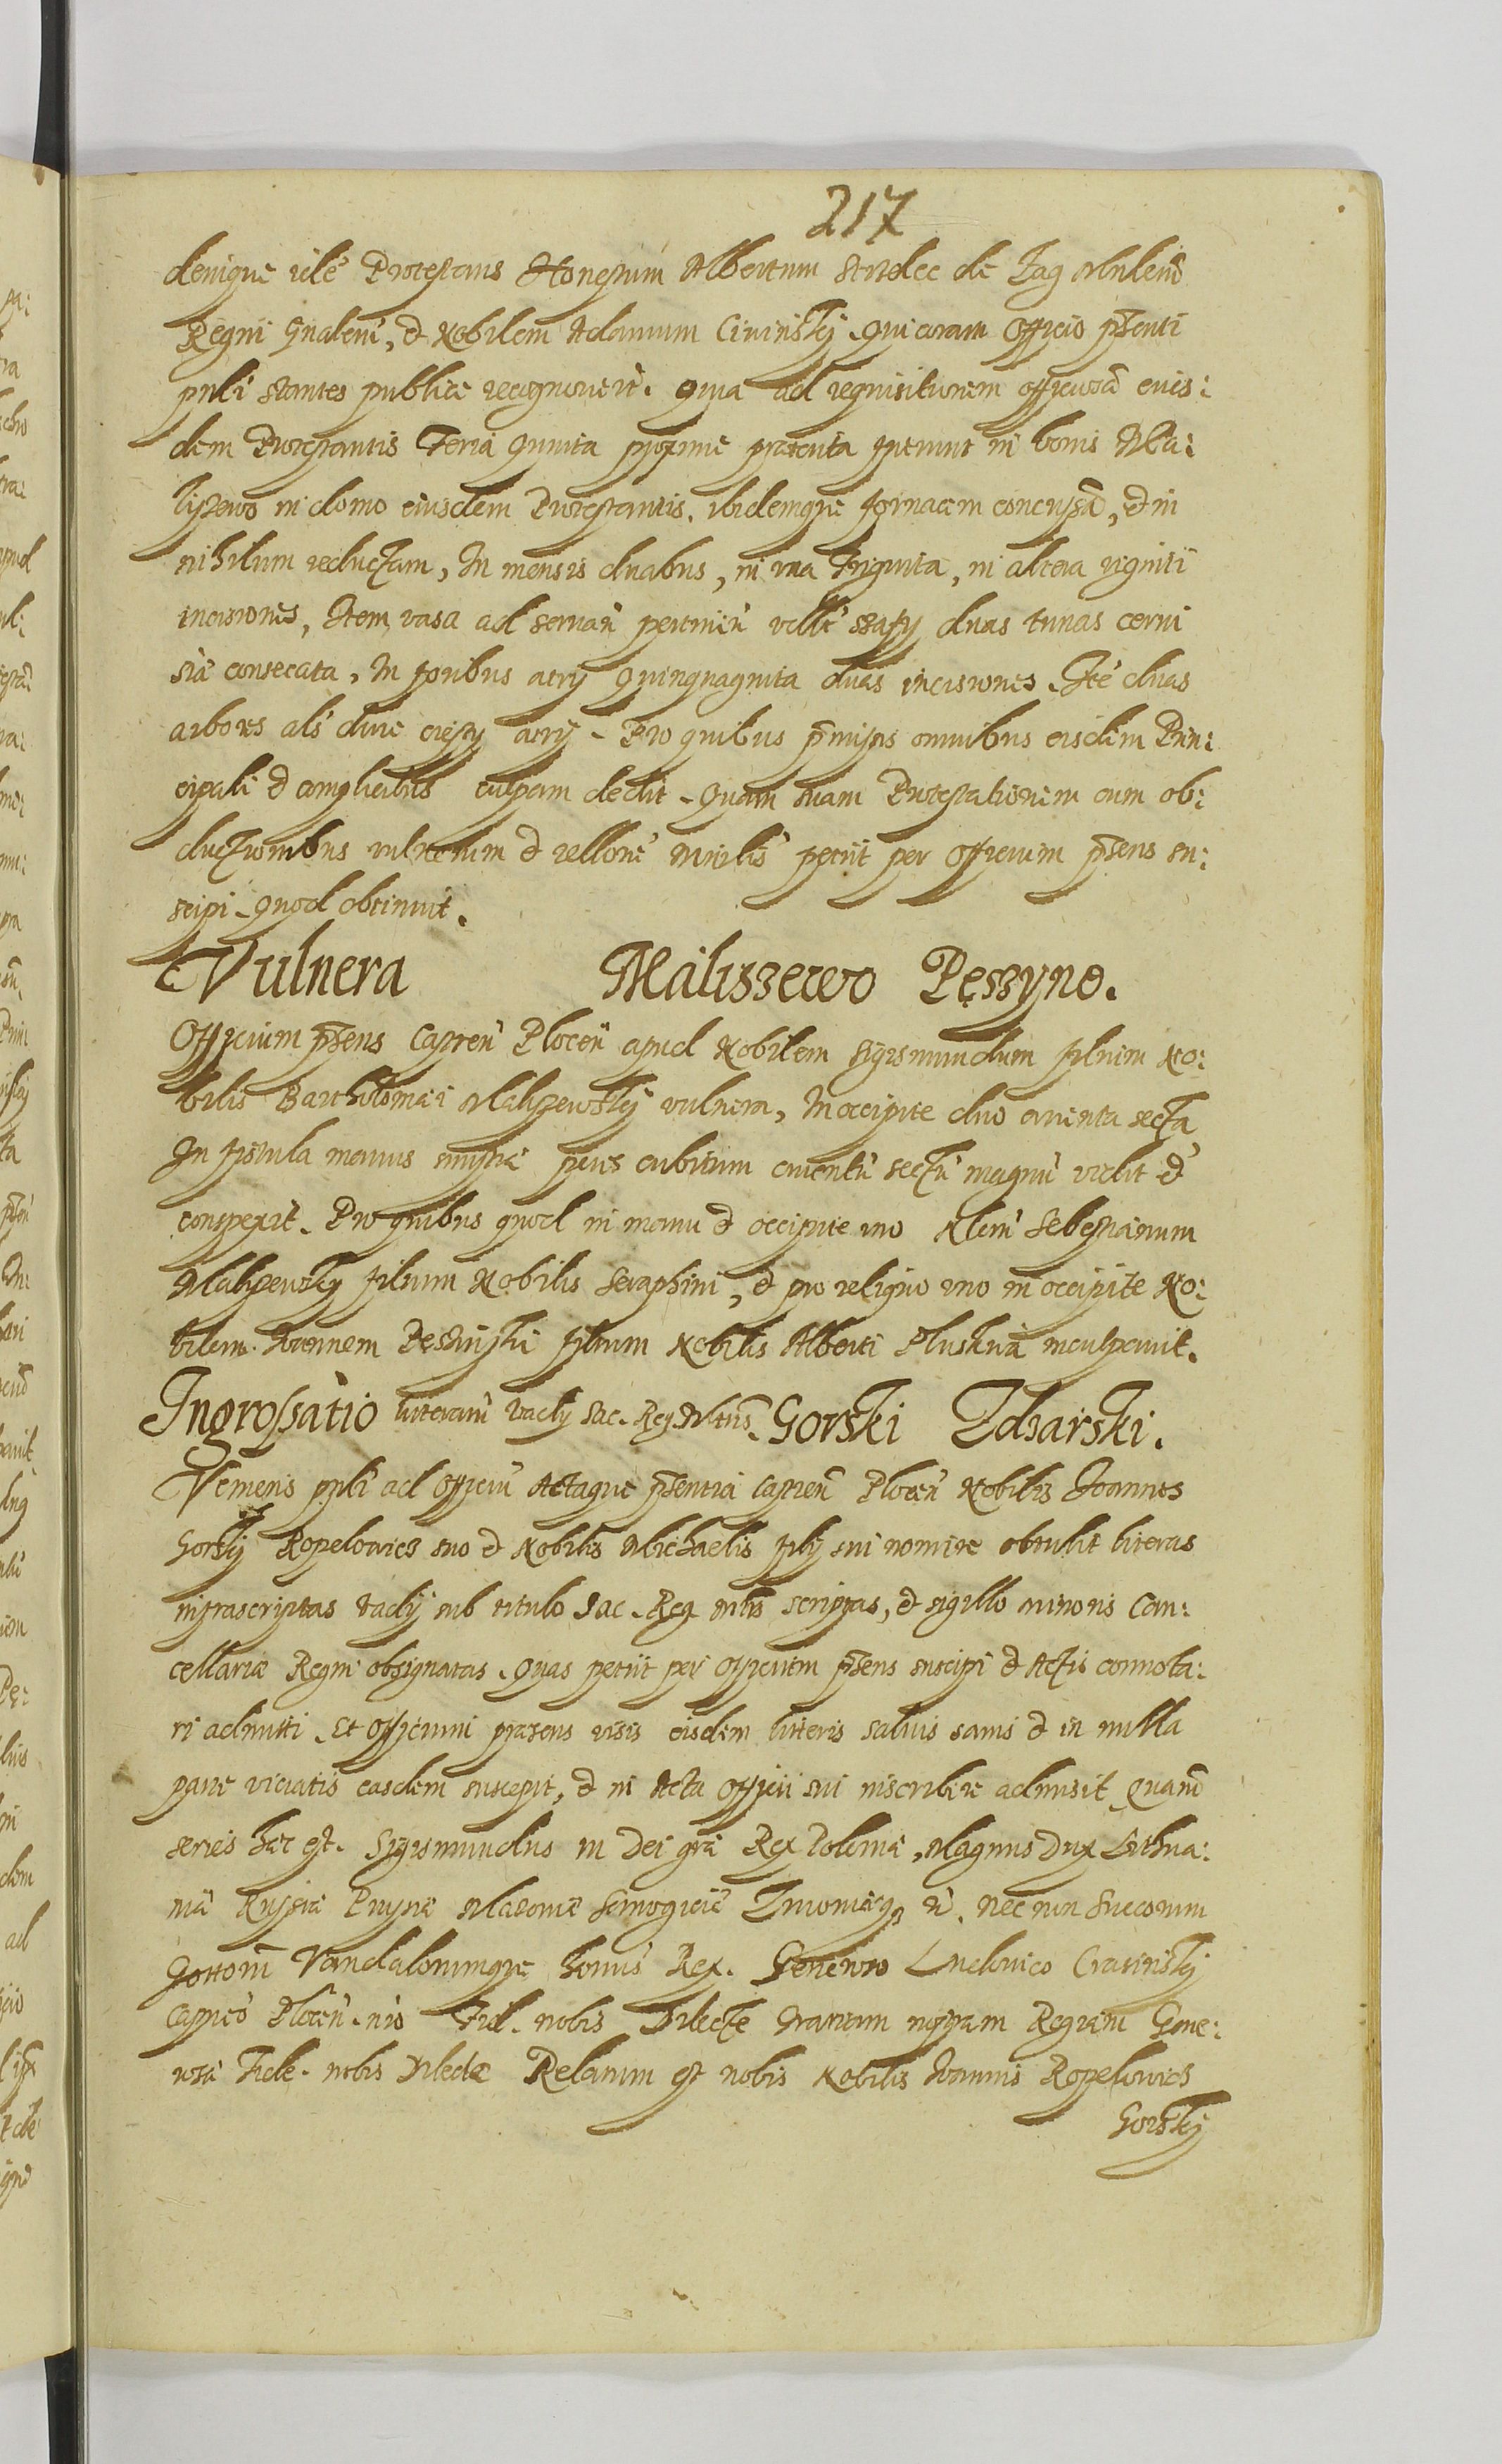 217
denique idē Protestans Honestum Albertum de Zag
Regni gnalem̄, & Nobilem Adamum Civinskÿ. Qui coram Officio pn̄senti
pn̄li stantes publice recognouer̄t. Quia ad requisitionem officiosā eius:
dem Protestantis Feria Quinta proxime præterita fuerunt in bonis Ma:
liszewo in domo eiusdem Protestantis, ibidemque fornacem concussā, & in
nihilum reductam, In mensis duabus, in vna Triginta, in altera viginti
incisiones, Item vasa ad seruan̄ pertinen̄ szafy duas tunas cerui
siæ consecata, In foribus atrÿ Quinquaginta duas incisiones. Itē duas
arbores als atrÿ. Pro quibus p̄missis omnibus eisdem Prin:
cipali & complicibus culpam dedit. Quam suam Protestationem cum ob:
ductionibus vulnerum & rellonē petiit per Officium pn̄sens su:
scipi. Quod obtinuit.
Vulnera Maliszewo Pęszyno.
Officium pn̄sens Capten̄ Plocen̄ apud Nobilem Sigismundum filium No:
bilis Bartholomæi Maliszewskÿ vulnera, In occipite duo cruenta secta
In fistula manus sinistræ penes cubitum cruentū sectū magnū vidit &
conspexit. Pro quibus quod in manu & occipite vno Nlem̄ Sebestianum
Maliszewskÿ filium Nobilis Seraphini, & pro reliquo vno in occipite No:
bilem Joannem filium Nobilis Alberti inculpauit.
Ingrossatio literarū Vadÿ Sac. Reg. Mttis. Gorski Zdzarski.
Veniens pn̄li ad Officiū Actaque pn̄sentia Capten̄ Plocen̄ Nobilis Joannes
Gorskÿ Ropelowicz suo & Nobilis Michaelis filÿ sui nomine obtulit literas
infrascriptas Vadÿ sub titulo Sac. Reg. Mttis scriptas, & sigillo minoris Can:
cellariæ Regni obsignatas. Quas petiit per Officium pn̄sens suscipi & Actis connota:
ri admitti. Et Officium præsens visis eisdem litteris saluis sanis & in nulla
parte viciatis easdem suscepit, & in Acta Officii sui inscribere admisit Quarū
series hæc est. Sigismundus III Dei grā Rex Poloniæ, Magnus Dux Lithua:
niæ Russiæ Prussiæ Masouiæ Samogitiæ Liuoniæq3 &. Nec non Suecorum
Gottorū Vandalorumque hæred. Rex. Generoso Ludouico Crasinskÿ
Captneo Plocen̄. nr̄o Fid. nobis Dilecte Gratiam nostram Regiam Gene:
rose Fide. nobis Dilecte Relatum est nobis Nobilis Joannis Ropelowicz
Gorskÿ